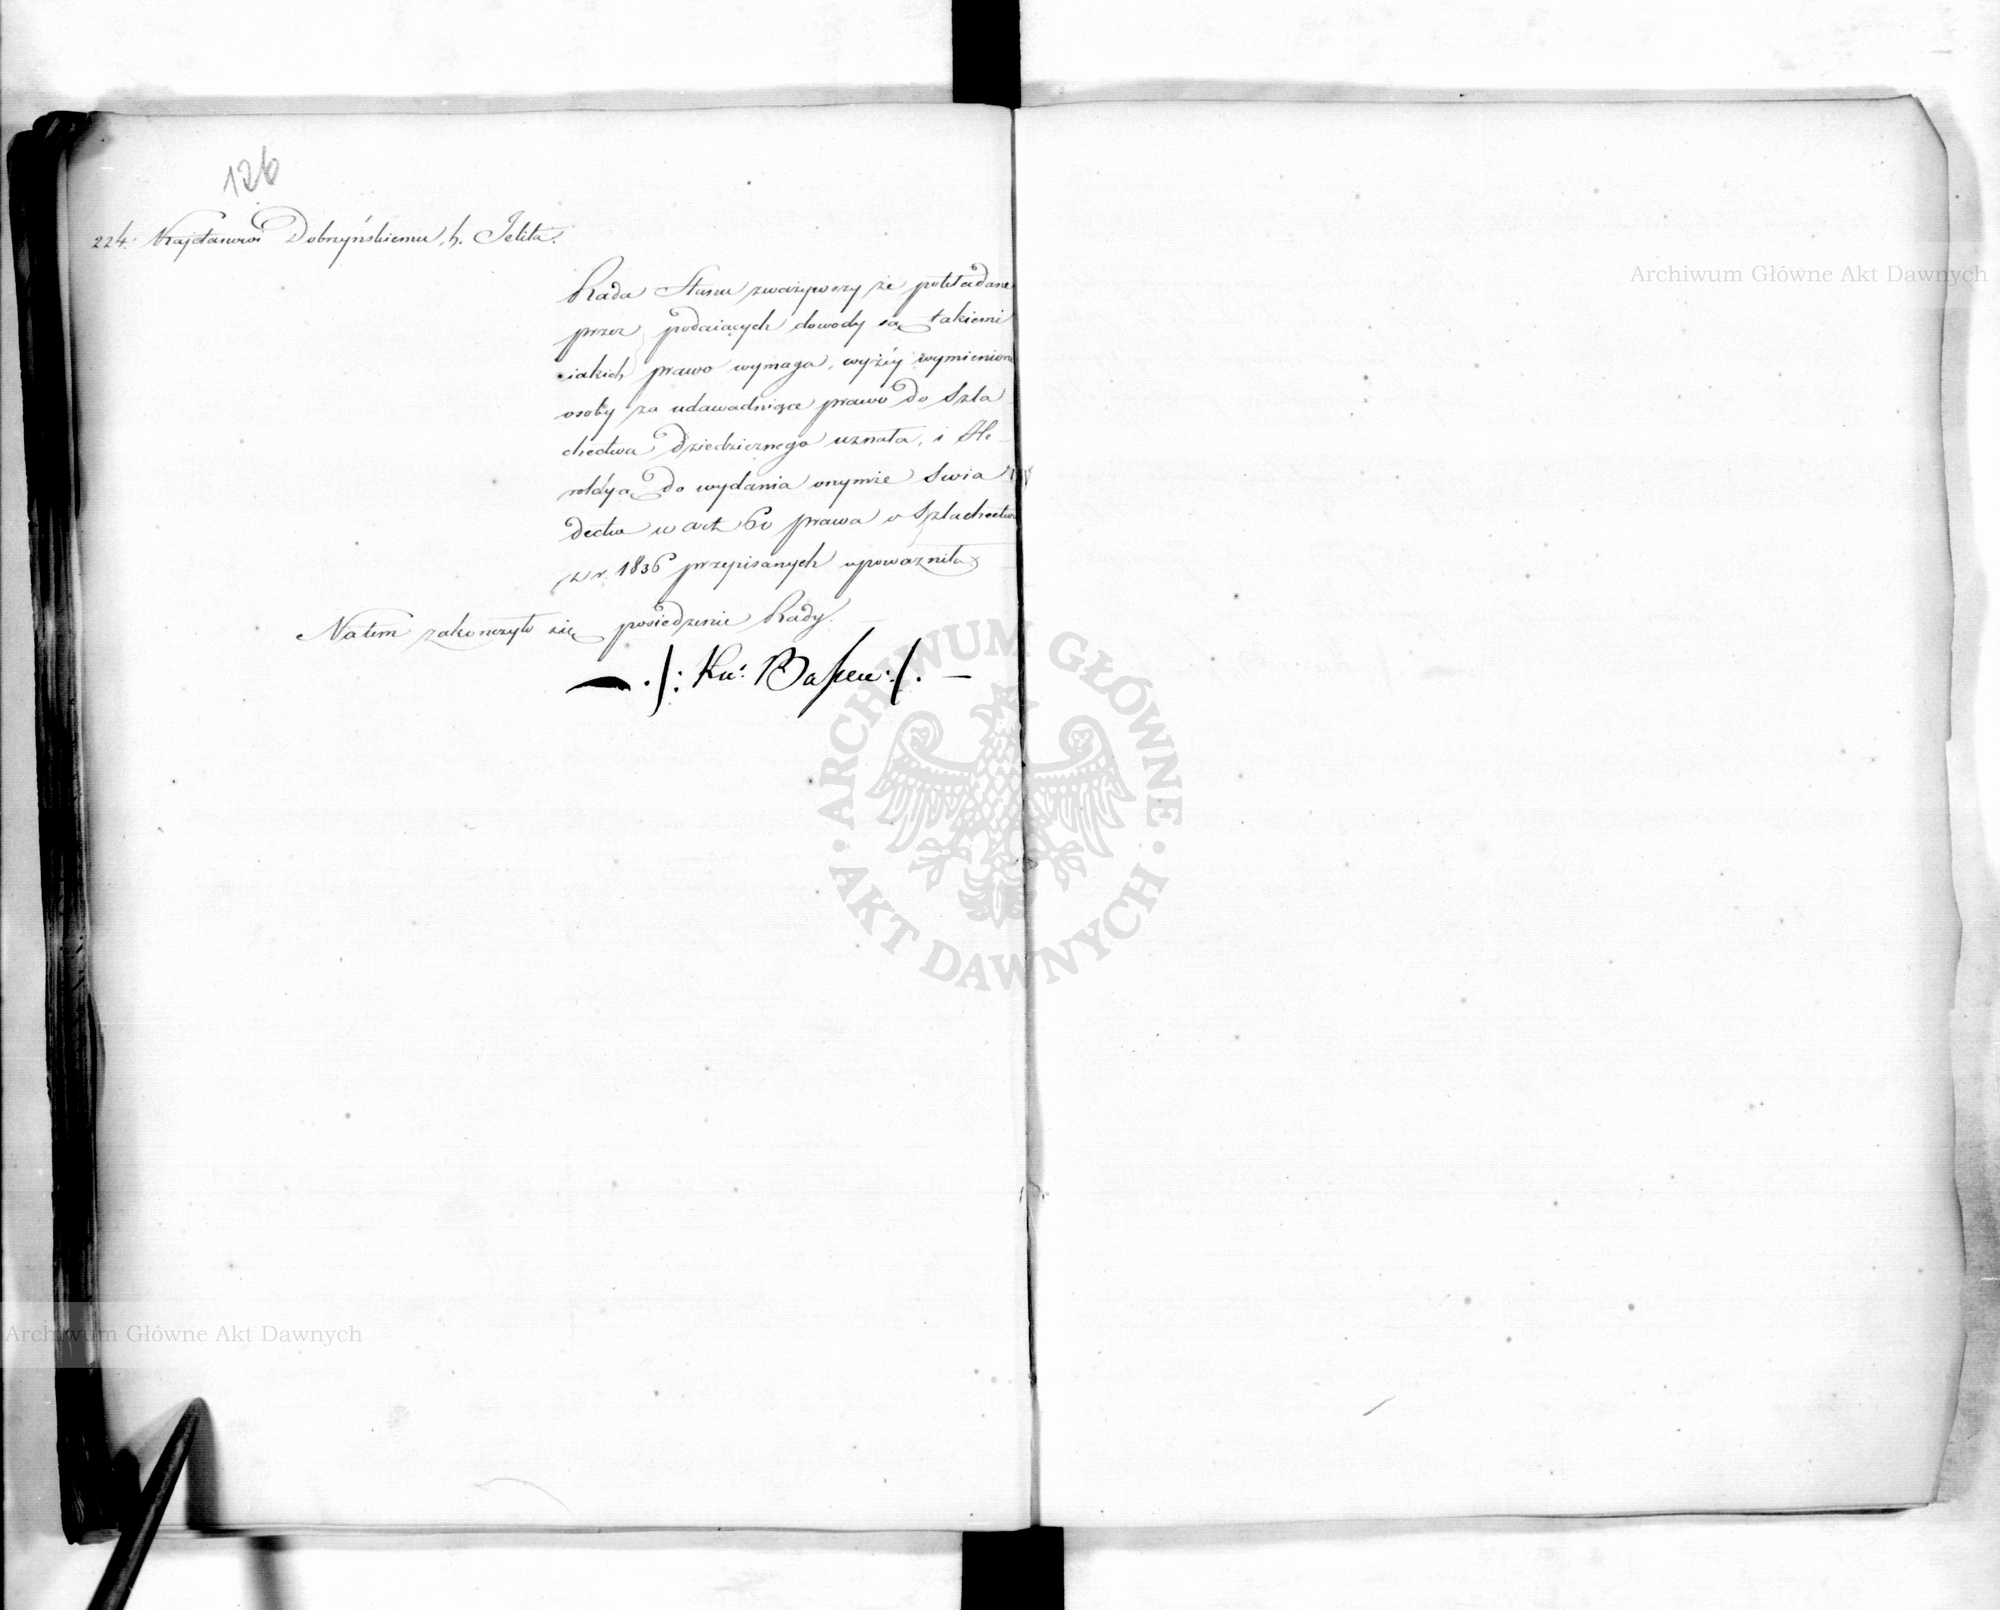 126
224. Kajetanowi Dobrzyńskiemu, h. Jelita.
Rada Stanu zważywszy że pokładane
przez podaiących dowody są takiemi
iakich prawo wymaga, wyżéy wymienione
osoby za udawadniące prawo do Szla
chectwa dziedzicznego uznała, i He-
roldyą do wydania onymże Swia
dectw w art 60 prawa o Szlachectwie
z r. 1836 przepisanych upoważniła
Natem zakończyło się posiedzenie Rady.
ARCHIWUM GŁÓWNE AKT DAWNYCH
Archiwum Główne Akt Dawnych
Archiwum Główne Akt Dawnych